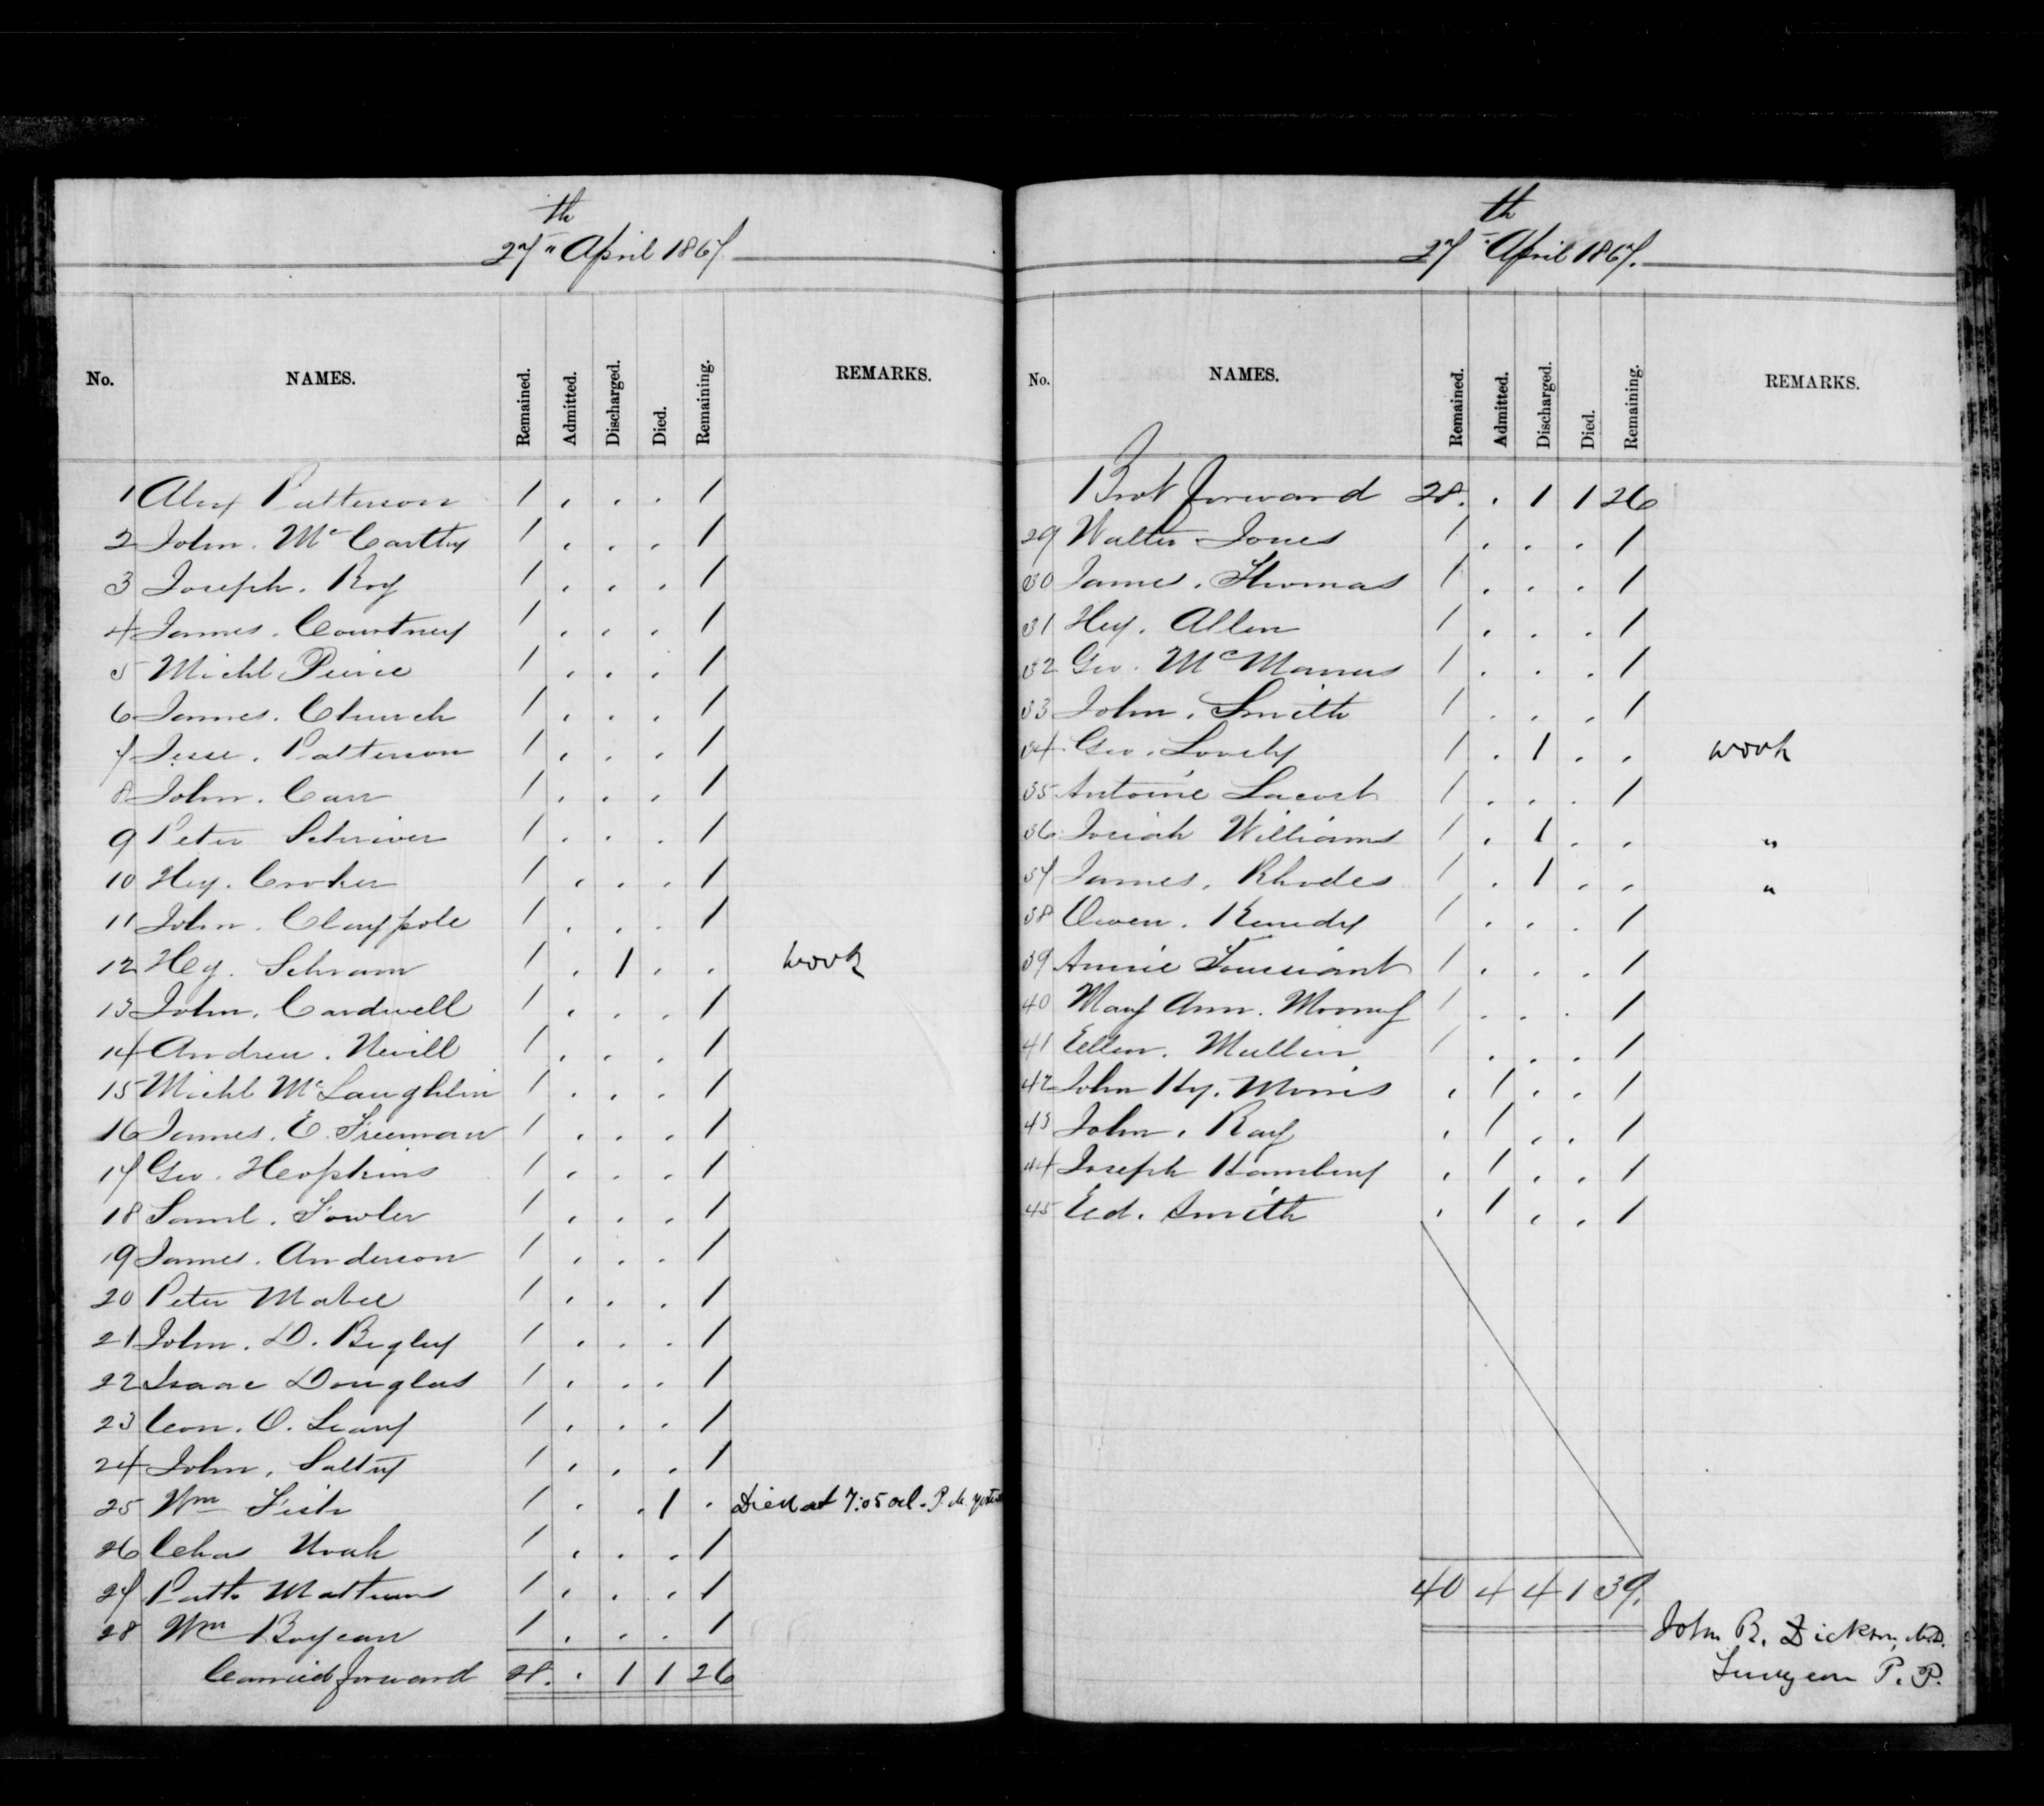 27th April 1867.
No. NAMES. Remained. Admitted. Discharged. Died. Remaining. REMARKS.
1 Alex Patterson 1 . . . 1
2 John. McCarthy 1 . . . 1
3 Joseph. Roy 1 . . . 1
4 James. Courtney 1 . . . 1
5 Michl Peirce 1 . . . 1
6 James. Church 1 . . . 1
7 Jesse. Patterson 1 . . . 1
8 John. Carr 1 . . . 1
9 Peter Schriver 1 . . . 1
10 Hy. Croker 1 . . . 1
11 John. Claypole 1 . . . 1
12 Hy. Schram 1 . 1 . . work
13 John. Cardwell 1 . . . 1
14 Andrew. Nevill 1 . . . 1
15 Michl McLaughlin 1 . . . 1
16 James. E. Freeman 1 . . . 1
17 Geo. Hopkins 1 . . . 1
18 Saml. Fowler 1 . . . 1
19 James. Anderson 1 . . . 1
20 Peter Mabee 1 . . . 1
21 John. D. Begley 1 . . . 1
22 Isaac Douglas 1 . . . 1
23 Corn. O. Leary 1 . . . 1
24 John. Salter 1 . . . 1
25 Wm Fish 1 . . 1 . Died at 7:05 ocl. P.M.
26 Chas 1 . . . 1
27 Patk Mathews 1 . . . 1
28 Wm Boyean 1 . . . 1
Carried forward 28. . 1 1 26
27th April 1867.
No. NAMES. Remained. Admitted. Discharged. Died. Remaining. REMARKS.
Brot forward 28. . 1 1 26
29 Walter Jones 1 . . . 1
30 James. Thomas 1 . . . 1
31 Hy. Allen 1 . . . 1
32 Geo. McManus 1 . . . 1
33 John. Smith 1 . . . 1
34 Geo. Lovely 1 . 1 . . work
35 Antoine Lacourt 1 . . . 1
36 Josiah Williams 1 . 1 . . "
37 James. Rhodes 1 . 1 . . "
38 Owen. Kenedy 1 . . . 1
39 Annie Toussiant 1 . . . 1
40 Mary Ann. Mooney 1 . . . 1
41 Ellen. Mullin 1 . . . 1
42 John Hy. Morris . 1 . . 1
43 John. Ray . 1 . . 1
44 Joseph Hambury . 1 . . 1
45 Ed. Smith . 1 . . 1
40 4 4 1 39.
John R. Dickson, M.D.
Surgeon P. P.